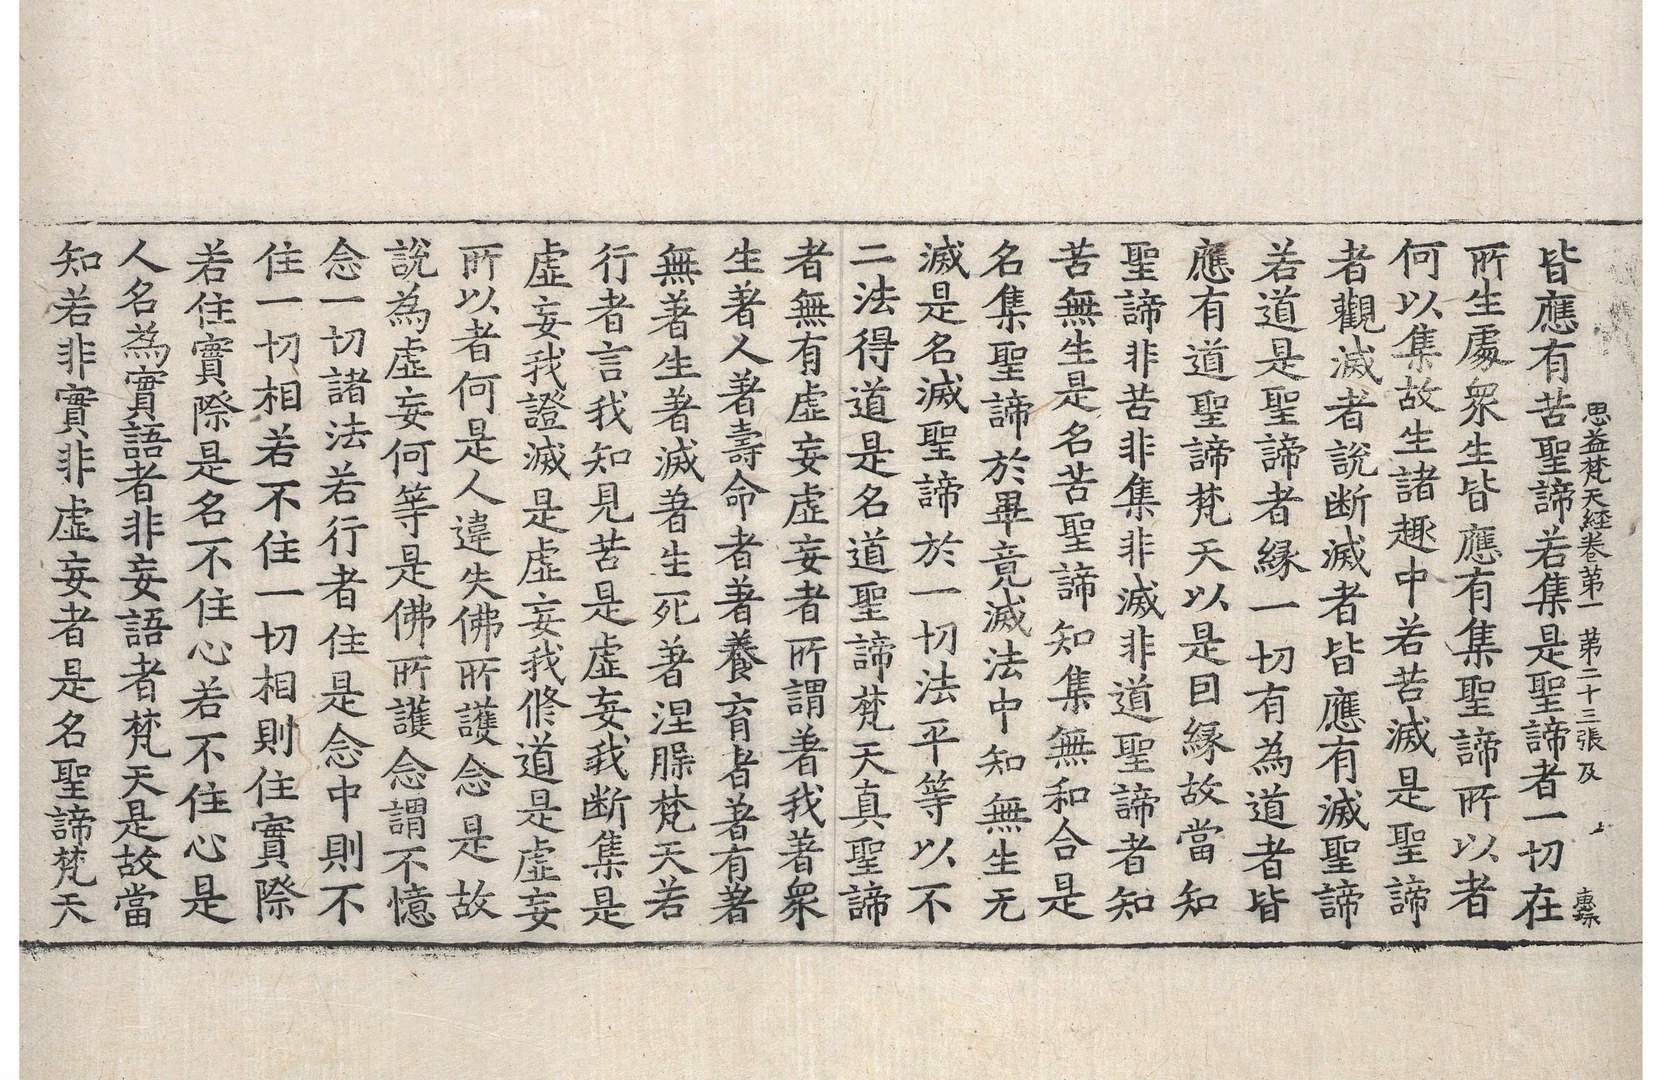 思益梵天経卷第一 第二十三張 及
皆應有苦聖諦若集是聖諦者一切在
所生處衆生皆應有集聖諦所以者
何以集故生諸趣中若苦滅是聖諦
者觀滅者說断滅者皆應有滅聖諦
若道是聖諦者縁一切有為道者皆
應有道聖諦梵天以是因縁故當知
聖諦非苦非集非滅非道聖諦者知
苦無生是名苦聖諦知集無和合是
名集聖諦於畢竟滅法中知無生无
滅是名滅聖諦於一切法平等以不
二法得道是名道聖諦梵天真聖諦
者無有虛妄虛妄者所謂著我著衆
生著人著壽命者著養育者著有著
無著生著滅著生死著涅槃梵天若
行者言我知見苦是虛妄我断集是
虛妄我證滅是虛妄我修道是虛妄
所以者何是人違失佛所護念是故
說為虛妄何等是佛所護念謂不憶
念一切諸法若行者住是念中則不
住一切相若不住一切相則住實際
若住實際是名不住心若不住心是
人名為實語者非妄語者梵天是故當
知若非實非虛妄者是名聖諦梵天